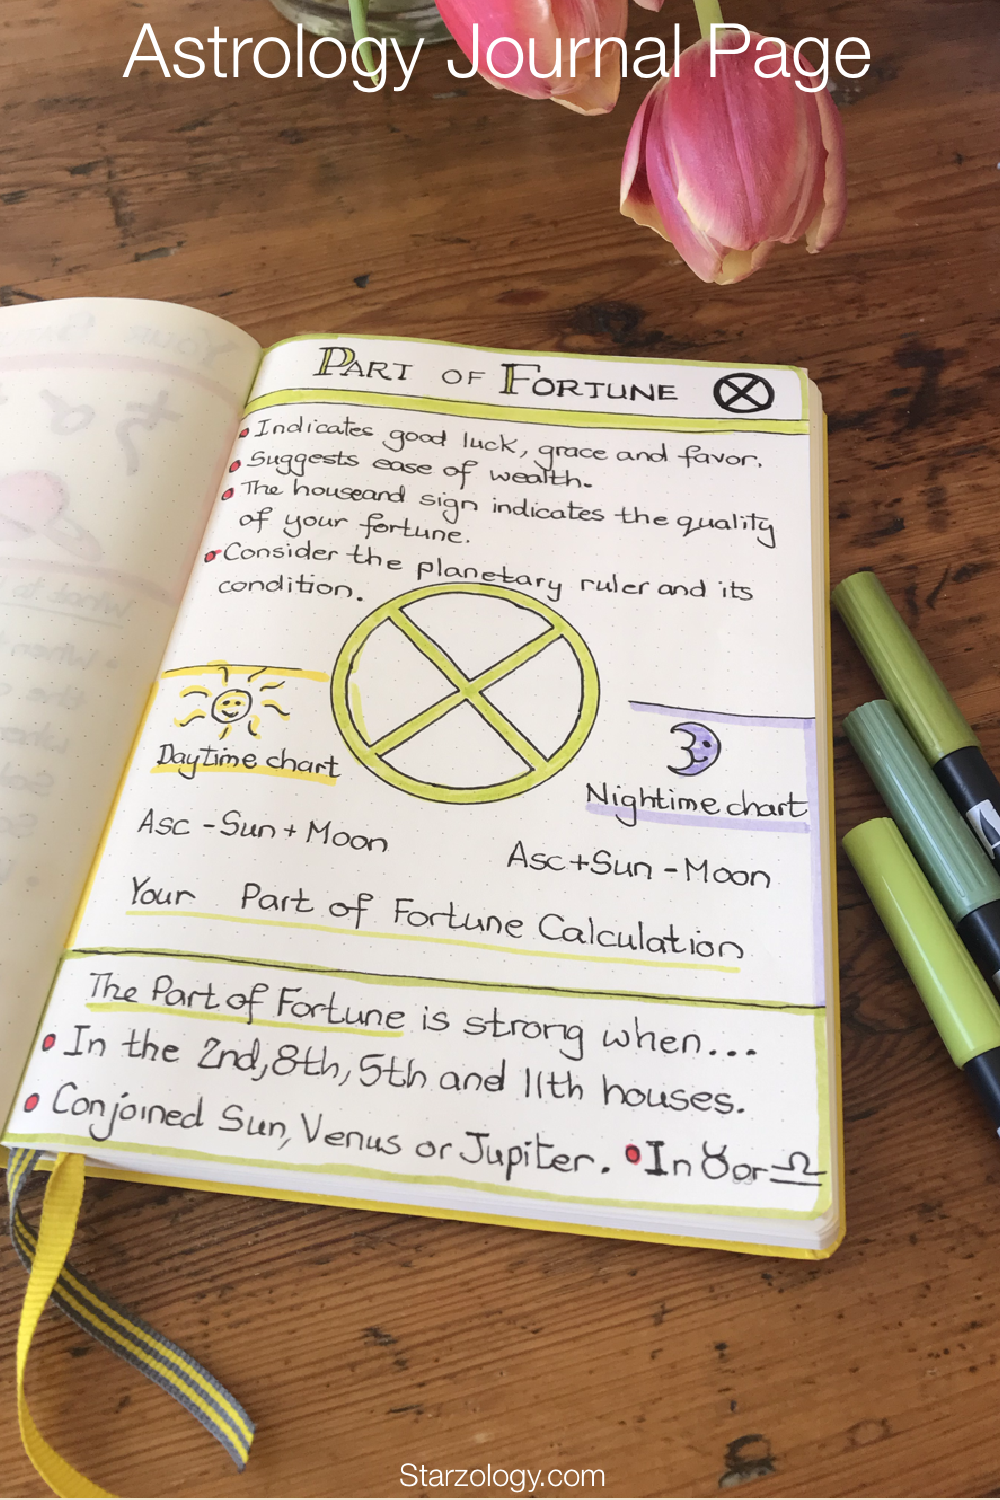 Astrology Journal Page
PART OF FORTUNE
• Indicates good luck, grace and favor.
• Suggests ease of wealth.
• The houseand sign indicates the quality
of your fortune.
• Consider the planetary ruler and its
condition.
Daytime chart
Nightime chart
Asc - Sun + Moon
Asc + Sun - Moon
Your Part of Fortune Calculation
The Part of Fortune is strong when...
• In the 2nd, 8th, 5th and 11th houses.
• Conjoined Sun, Venus or Jupiter. • In ♉ or ♎
Starzology.com